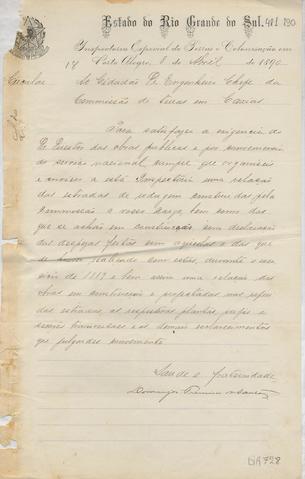 Estado do Rio Grande do Sul. 411 190
Inspectoria Especial de Terras e Colonisação em
14 Porto Alegre, 8 de Abril de 1890
Circular Ao Cidadão Engenheiro Chefe da
Commissão de Terras em Caxias
Para satisfazer a exigencia do
Director das obras publicas e por conveniencia
do serviço nacional cumpre que organiseis
e envieis a esta Inspectoria uma relação
das estradas de rodagem construidas pela
Commissão a vosso cargo bem como das
que se achão em construcção com declaração
das despezas feitas com aquellas e das que
se realizado com estas, durante o exer-
cicio de 1889 e bem assim uma relação das
obras em construcção e projectadas nas referi-
das estradas, as respectivas plantas, perfis e
secções transversaes e os demais esclarecimentos
que julgardes conveniente.
Saude e fraternidade
Domingos
BA728